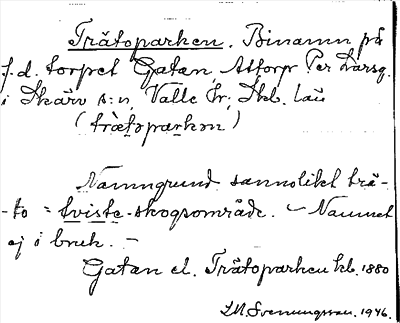 Trätoparken. Binamn på
f.d. torpet Gatan Attorp Per Larsg.
i Skärv s:n, Valle hr, Skb. län
(trætoparkɒn)
Namngrund sannolikt trä-
-to = tviste-skogsområde. – Namnet
ej i bruk. –
Gatan el. Trätoparken kb. 1880
LM Svenungsson. 1946.